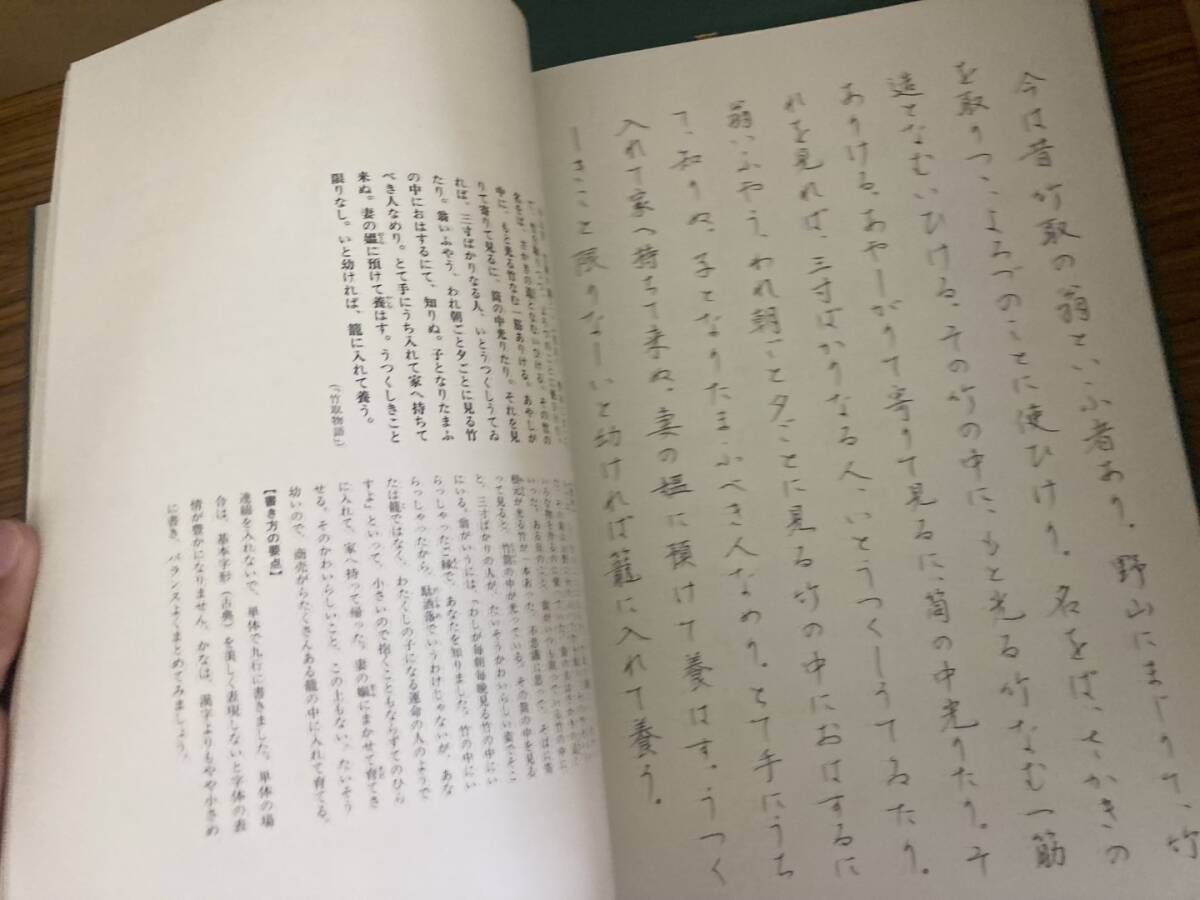 今は昔竹取の翁といふ者あり。野山にまじりて、竹
を取りつゝよろづのことに使ひけり。名をば、さかきの
造となむいひける。その竹の中に、もと光る竹なむ一筋
ありける。あやしがりて寄りて見るに、筒の中光りたり。そ
れを見れば、三寸ばかりなる人、いとうつくしうてゐたり。
翁いふやう、われ朝ごと夕ごとに見る竹の中におはするに
て、知りぬ。子となりたまふべき人なめり。とて手にうち
入れて家へ持ちて来ぬ。妻の媼に預けて養はす。うつく
しきこと限りなしいと幼ければ籠に入れて養う。
名をば、さかきの造となむいひける。その竹の
中に、もと光る竹なむ一筋ありける。あやしが
りて寄りて見るに、筒の中光りたり。それを見
れば、三寸ばかりなる人、いとうつくしうてゐ
たり。翁いふやう、われ朝ごと夕ごとに見る竹
の中におはするにて、知りぬ。子となりたまふ
べき人なめり。とて手にうち入れて家へ持ちて
来ぬ。妻の媼に預けて養はす。うつくしきこと
限りなし。いと幼ければ、籠に入れて養う。
（『竹取物語』）
根元が光る竹が一本あった。不思議に思って、そばに寄
って見ると、竹筒の中が光っている。その筒の中を見る
と、三寸ばかりの人が、たいそうかわいらしい姿でそこ
にいる。翁がいうには、「わしが毎朝毎晩見る竹の中にい
らっしゃったご縁で、あなたを知りました。竹の中にい
らっしゃったから、駄洒落でいうわけじゃないが、あな
たは籠ではなく、わたくしの子になる運命の人のようで
すよ」といって、小さいので抱くこともならずてのひら
に入れて、家へ持って帰った。妻の嫗にまかせて育てさ
せる。そのかわいらしいこと、この上もない。たいそう
幼いので、商売がらたくさんある籠の中に入れて育てる。
【書き方の要点】
連綿を入れないで、単体で九行に書きました。単体の場
合は、基本字形（古典）を美しく表現しないと字体の表
情が豊かになりません。かなは、漢字よりもやや小さめ
に書き、バランスよくまとめてみましょう。